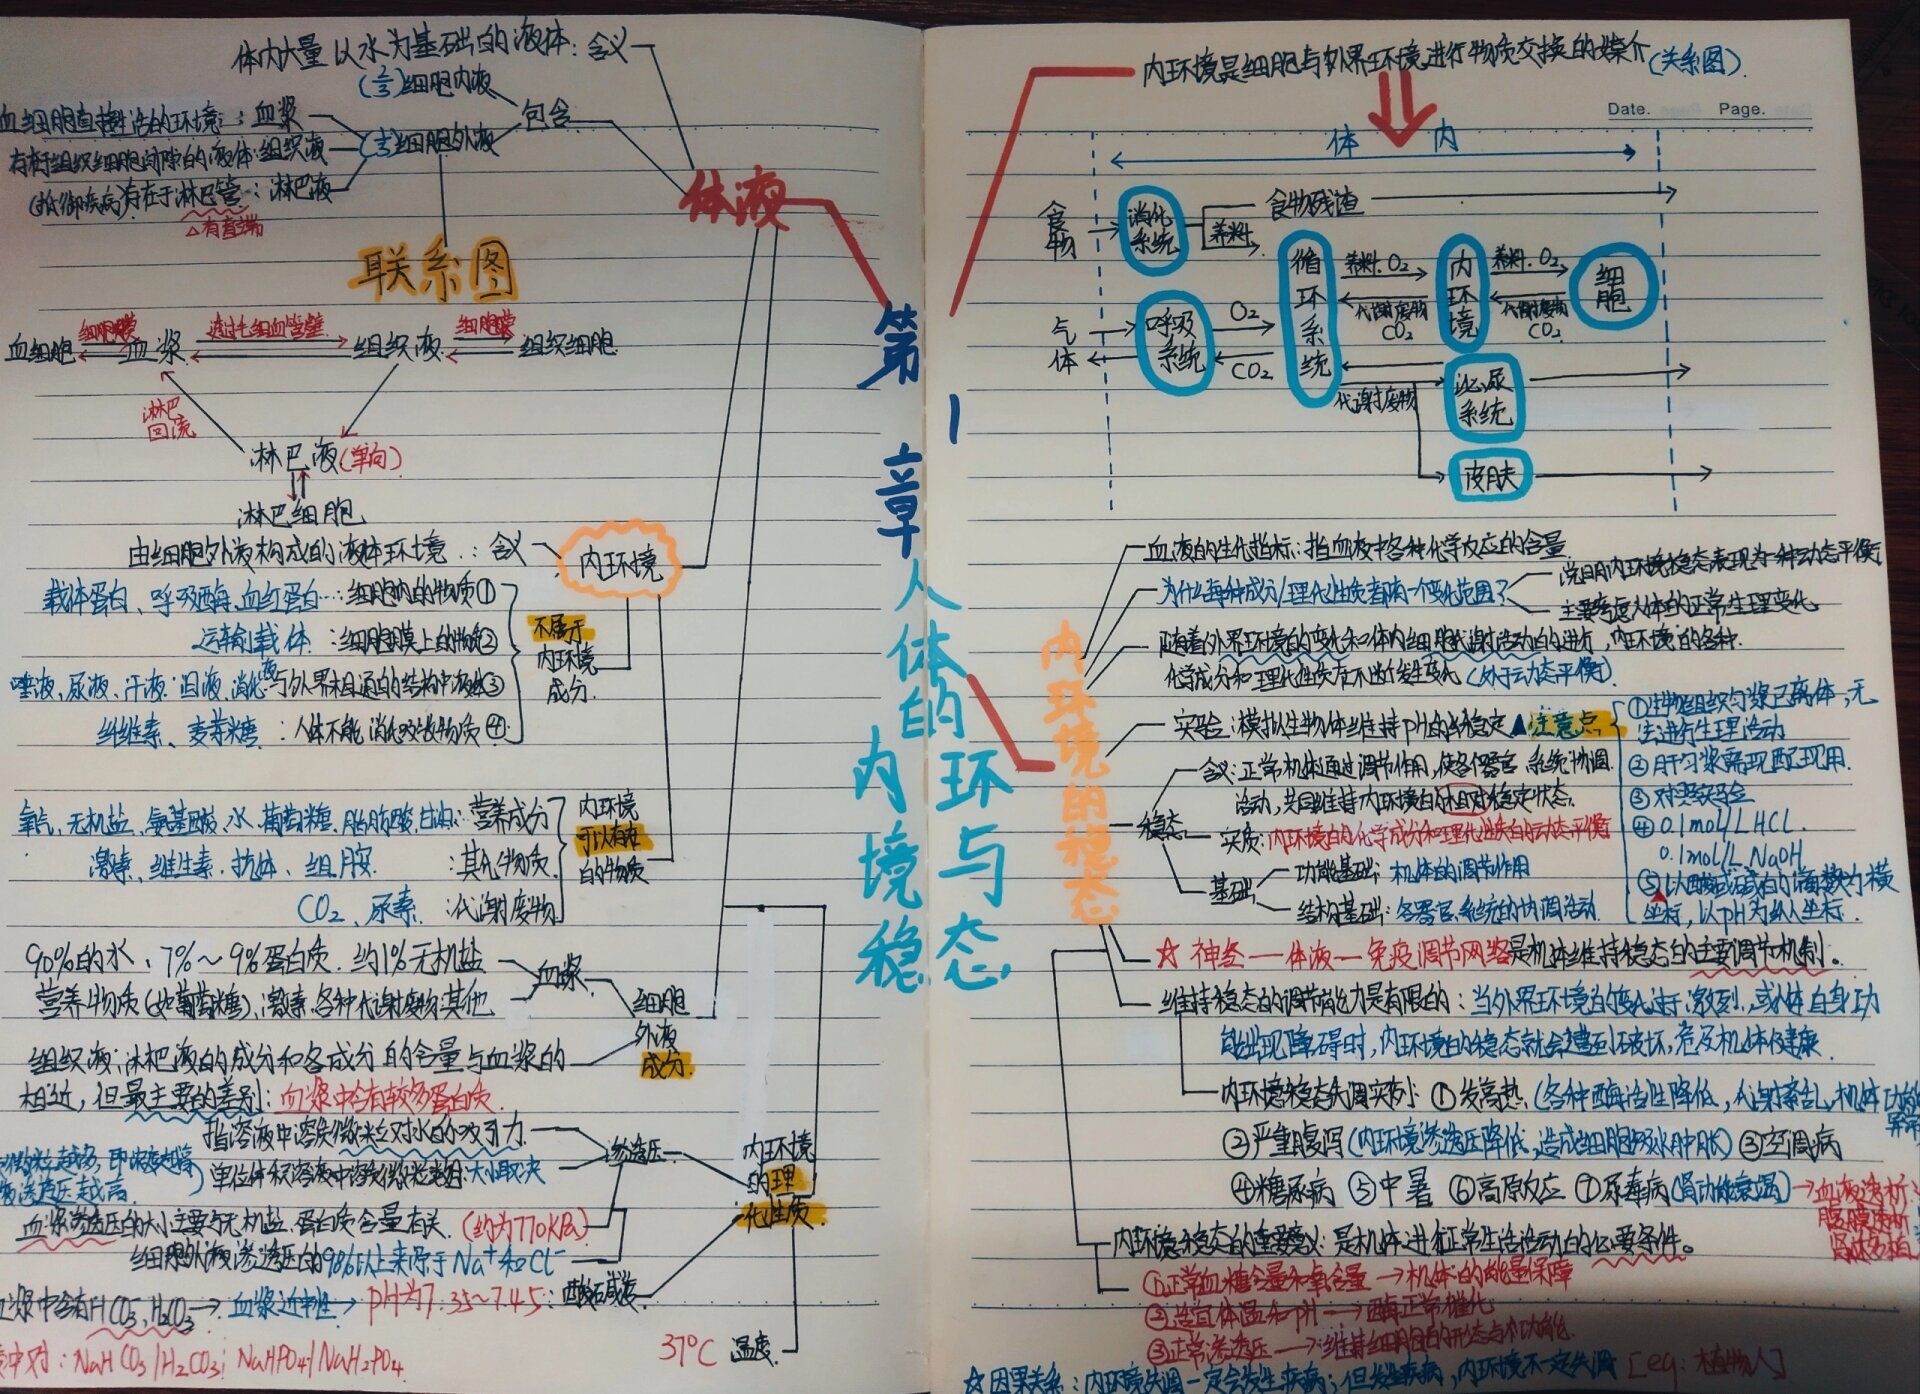 体内大量以水为基础的液体:含义
(2/3)细胞内液
包含
血细胞直接生活的环境:血浆
存在于组织细胞间隙的液体:组织液
(1/3)细胞外液
(抵御疾病)存在于淋巴管:淋巴液
△有盲端
体液
联系图
血细胞 细胞膜 血浆 透过毛细血管壁 组织液 细胞膜 组织细胞
淋巴回流
淋巴液(单向)
淋巴细胞
由细胞外液构成的液体环境:含义
内环境
载体蛋白、呼吸酶、血红蛋白…:细胞内的物质①
运输载体:细胞膜上的物质②
唾液、尿液、汗液、泪液、消化液:与外界相通的结构中液体③
纤维素、麦芽糖:人体不能消化吸收物质④
不属于
内环境
成分.
氧气,无机盐、氨基酸、水、葡萄糖、脂肪酸,甘油:营养成分
激素、维生素.抗体、组胺:其他物质
CO₂、尿素:代谢废物
内环境
可以存在
的物质
90%的水、7%~9%蛋白质.约1%无机盐
血浆
营养物质(如葡萄糖)、激素.各种代谢废物:其他
细胞
外液
成分.
组织液,淋巴液的成分和各成分的含量与血浆的
相近,但最主要的差别:血浆中含有较多蛋白质
指溶液中溶质微粒对水的吸引力
渗透压
单位体积溶液中溶质微粒数目:大小取决
渗透压越高
血浆渗透压的大小主要与无机盐.蛋白质含量有关.(约为770kPa)
细胞外液渗透压的90%以上来源于Na⁺和Cl⁻
内环境
的理
化性质.
血浆中含有HCO₃⁻,H₂CO₃→血浆近中性→pH为7.35~7.45:酸碱度
中对:NaHCO₃/H₂CO₃;NaHPO₄/NaH₂PO₄
37℃ 温度
第1章 人体的内环境与稳态
内环境是细胞与外界环境进行物质交换的媒介(关系图)
Date. Page.
体 内
食物 消化系统 食物残渣
养料
循环系统 养料.O₂ 内环境 养料.O₂ 细胞
代谢废物 CO₂ 代谢废物 CO₂
气体 呼吸系统 O₂
CO₂
代谢废物
泌尿系统
皮肤
内环境的稳态
血液的生化指标:指血液中各种化学反应的含量
为什么每种成分/理化性质都有一个变化范围?
说明内环境稳态表现为一种动态平衡
主要考虑人体的正常生理变化
随着外界环境的变化和体内细胞代谢活动的进行,内环境的各种
化学成分和理化性质在不断发生变化(处于动态平衡)
实验:模拟生物体维持pH的稳定▲注意点
①生物组织匀浆已离体,无
法进行生理活动
②肝匀浆需现配现用.
③对照实验
④0.1mol/LHCL.
0.1mol/L.NaOH
⑤以酸或碱的滴数为横
坐标,以pH为纵坐标.
稳态
含义:正常机体通过调节作用,使各个器官、系统协调
活动,共同维持内环境的相对稳定状态.
实质:内环境的化学成分和理化性质的动态平衡
基础
功能基础:机体的调节作用
结构基础:各器官.系统的协调活动.
☆神经—体液—免疫调节网络是机体维持稳态的主要调节机制。
维持稳态的调节能力是有限的:当外界环境的变化过于激烈,或人体自身功
能出现障碍时,内环境的稳态就会遭到破坏,危及机体健康.
内环境稳态失调实例:①发高热(各种酶活性降低,代谢紊乱,机体功能异常
②严重腹泻(内环境渗透压降低,造成细胞吸水肿胀)③空调病
④糖尿病 ⑤中暑 ⑥高原反应 ⑦尿毒病(肾功能衰竭)→血液透析
腹膜透析
肾体移植
内环境稳态的重要意义:是机体进行正常生活活动的必要条件。
①正常血糖含量和氧含量→机体的能量保障
②适宜体温和pH→酶正常催化
③正常渗透压→维持细胞的形态与功能.
☆因果关系:内环境失调一定会发生疾病;但发生疾病,内环境不一定失调[eg:植物人]